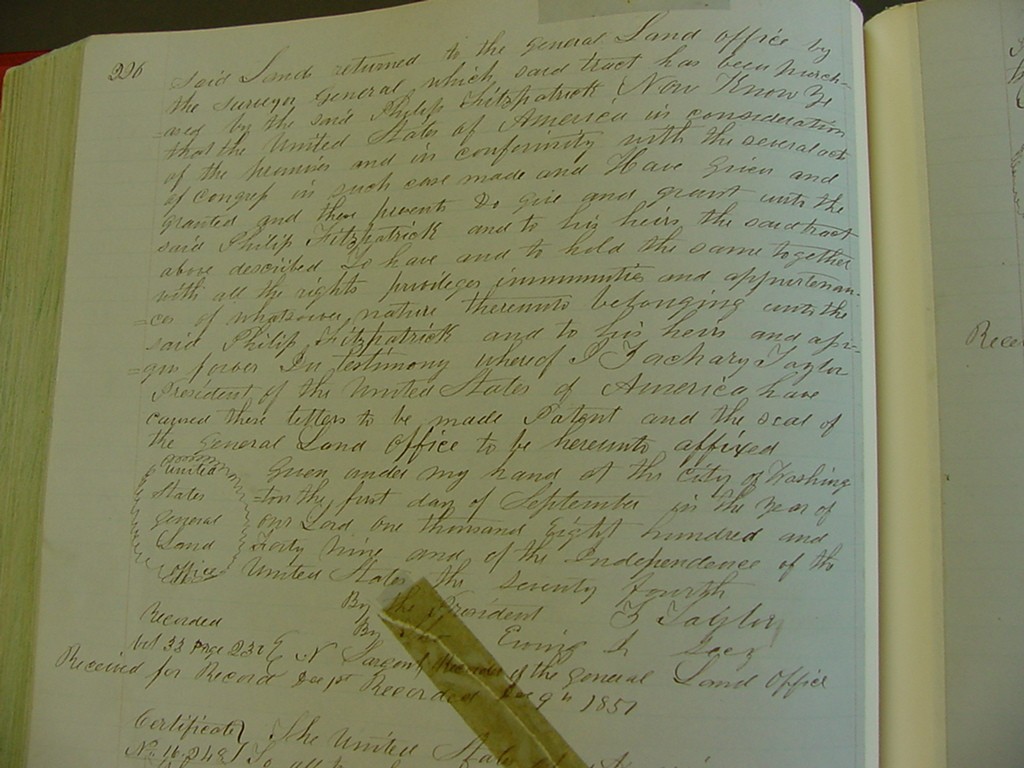 226
said Lands returned to the General Land office by
the Surveyor General which said tract has been purch-
ased by the said Philip Fitzpatrick Now Know Ye
that the United States of America in consideration
of the premises and in conformity with the several act
of Congress in such case made and Have Given and
granted and these presents Do give and grant unto the
said Philip Fitzpatrick and to his heirs the said tract
above described To have and to hold the same together
with all the rights privileges immunities and appurtenan-
=ces of whatsoever nature thereunto belonging unto the
said Philip Fitzpatrick and to his heirs and assi-
=gns forever In testimony whereof I Zachary Taylor
President of the United States of America have
caused these letters to be made Patent and the seal of
the General Land Office to be hereunto affixed
United Given under my hand at the City of Washing
States =ton the first day of September in the Year of
General our Lord one thousand Eight hundred and
Land Forty Nine and of the Independence of the
Office United States the seventy fourth
By the President Z Taylor
Recorded By Ewing Jr Secy
Vol 33 Page 232 E N Sargent Recorder of the General Land Office
Received for Record Recorded 9th 1851
Certificate The United States
No 16248 To all
Recei